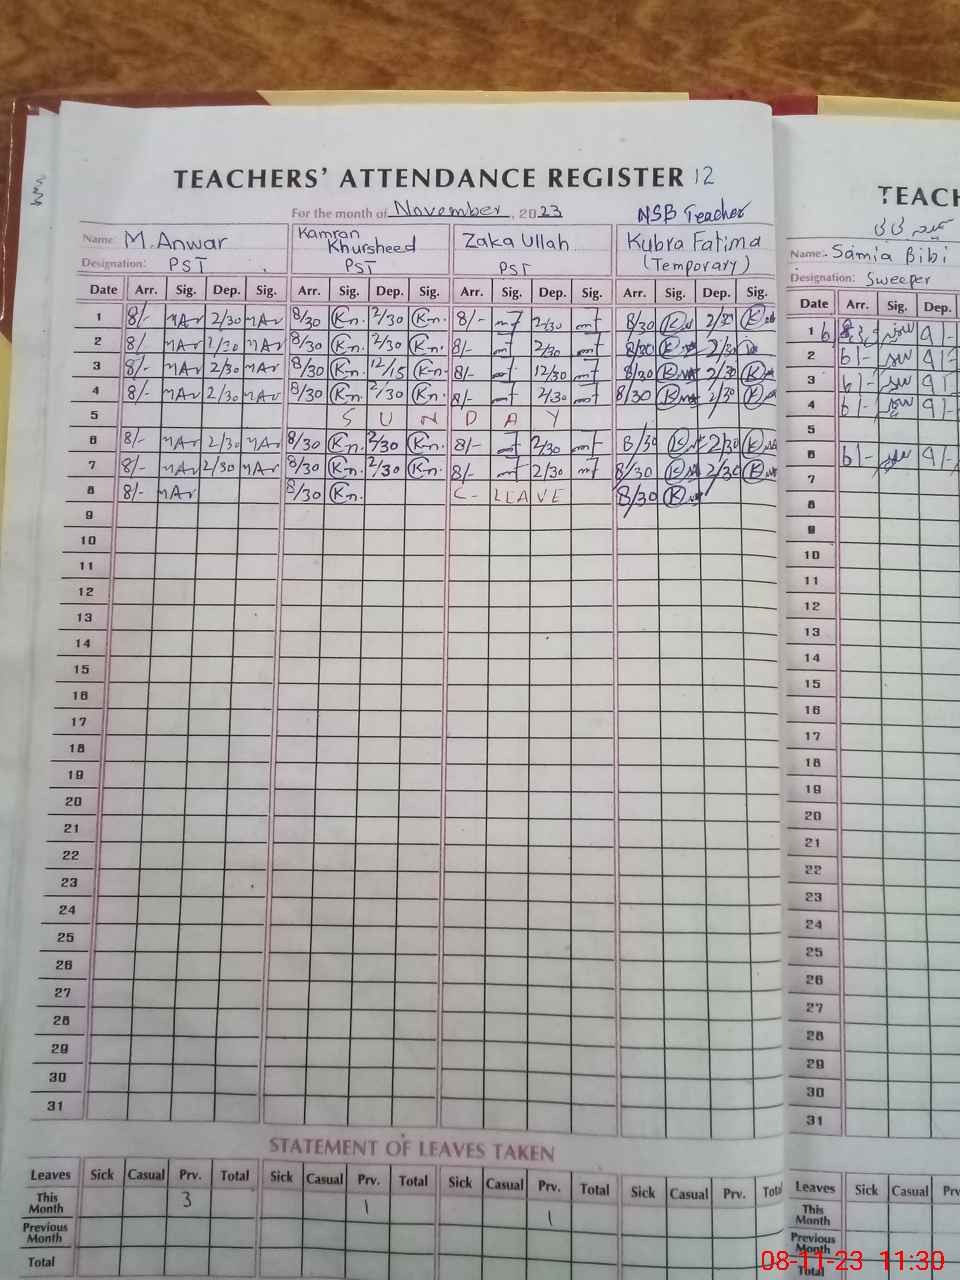 TEACHERS' ATTENDANCE REGISTER 12
For the month of November, 2023
NSB Teacher
Name: M. Anwar Kamran Khursheed Zaka Ullah Kubra Fatima
Designation: PST PST PST (Temporary)
Date Arr. Sig. Dep. Sig. Arr. Sig. Dep. Sig. Arr. Sig. Dep. Sig. Arr. Sig. Dep. Sig.
1 8/- MAr 2/30 MAr 8/30 Kn. 2/30 Kn. 8/- mt 2/30 mt 8/30 K 2/30 K
2 8/- MAr 2/30 MAr 8/30 Kn. 2/30 Kn. 8/- mt 2/30 mt 8/30 K 2/30
3 8/- MAr 2/30 MAr 8/30 Kn. 12/15 Kn. 8/- mt 12/30 mt 8/30 K 2/30 K
4 8/- MAr 2/30 MAr 8/30 Kn. 2/30 Kn. 8/- mt 2/30 mt 8/30 K 2/30 K
5 S U N D A Y
6 8/- MAr 2/30 MAr 8/30 Kn. 2/30 Kn. 8/- mt 2/30 mt 8/30 K 2/30 K
7 8/- MAr 2/30 MAr 8/30 Kn. 2/30 Kn. 8/- mt 2/30 mt 8/30 K 2/30 K
8 8/- MAr 8/30 Kn. C- LEAVE 8/30 K
9
10
11
12
13
14
15
16
17
18
19
20
21
22
23
24
25
26
27
28
29
30
31
STATEMENT OF LEAVES TAKEN
Leaves Sick Casual Prv. Total Sick Casual Prv. Total Sick Casual Prv. Total Sick Casual Prv. Total
This Month 3 1 1
Previous Month
Total
TEACH
Name:- Samia Bibi
Designation: Sweeper
Date Arr. Sig. Dep.
1 9/-
2 6/- 9/-
3 6/- 9/-
4 6/- 9/-
5
6 6/- 9/-
7
8
9
10
11
12
13
14
15
16
17
18
19
20
21
22
23
24
25
26
27
28
29
30
31
Leaves Sick Casual Prv
This Month
Previous Month
Total
08-11-23 11:30